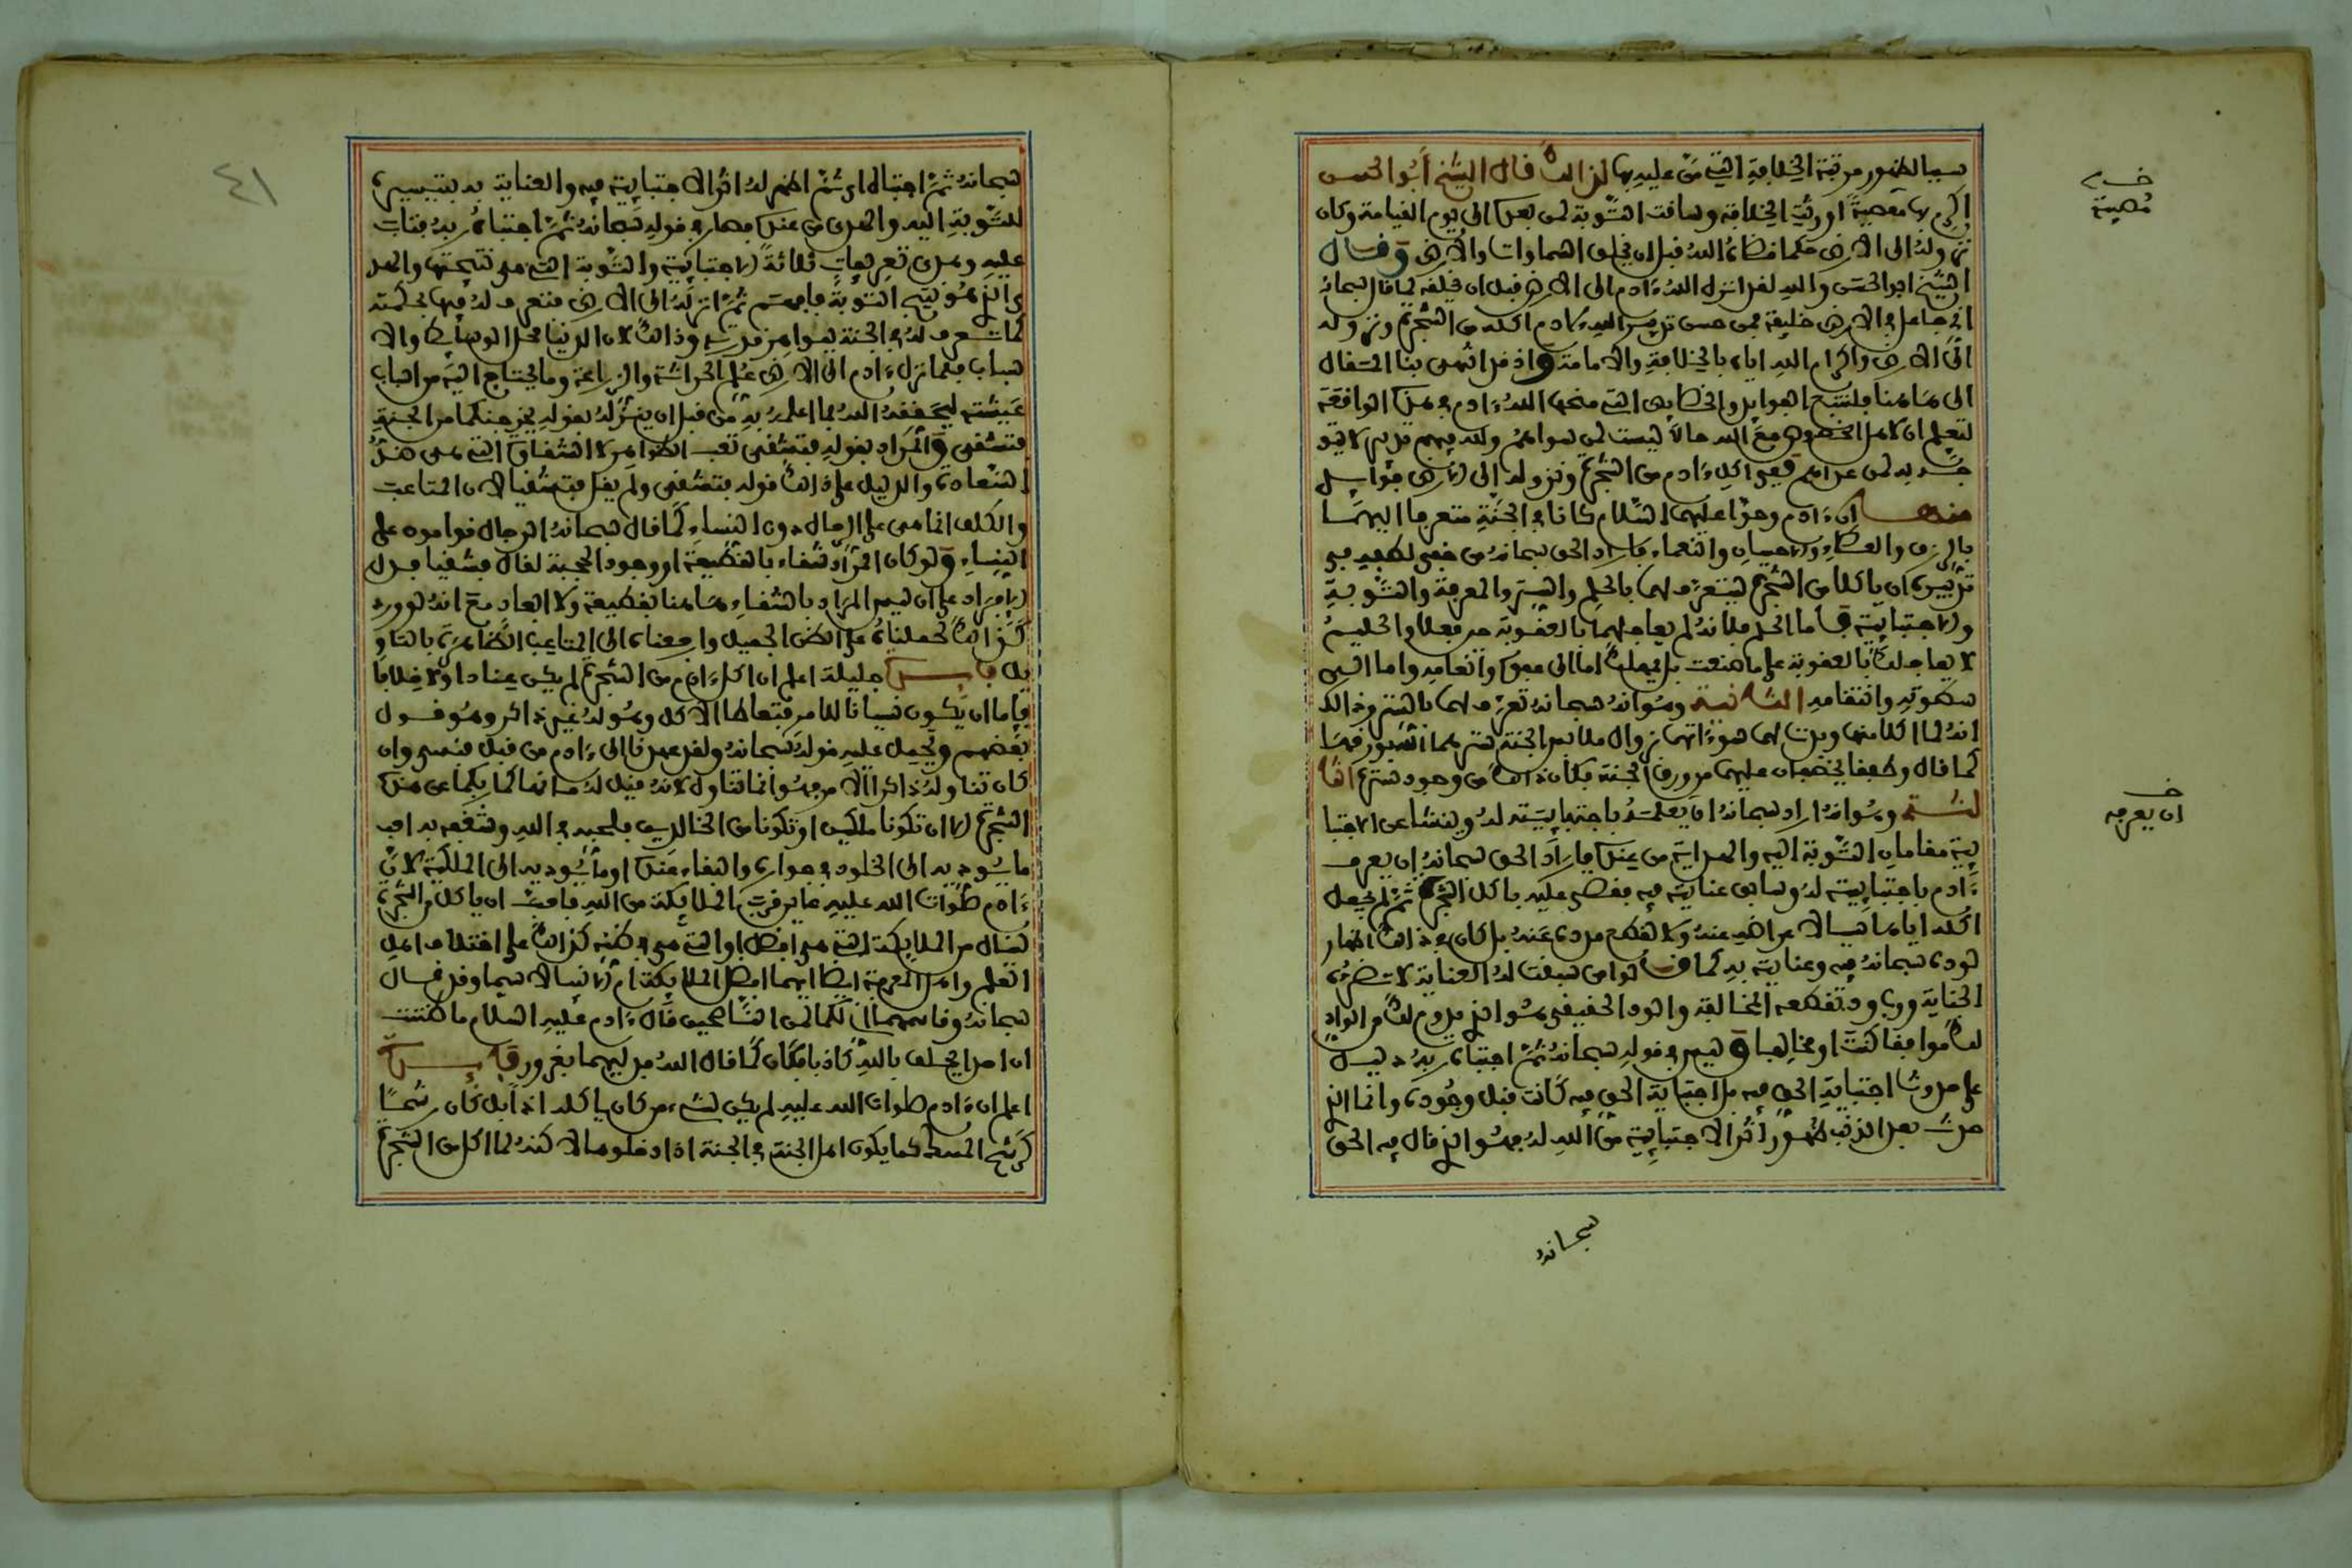 سببا لظهور مرتبة الخلافة التي من عليه بها لذالك قال الشيخ أبو الحسن
اكرم بها معصية اورثت الخلافة وسافت التوبة لمن بعده الى يوم القيامة وكان
نزوله الى الارض حكما قضاه الله قبل ان يخلق السماوات والارض وقال
الشيخ ابو الحسن والله لقد انزل الله ءادم الى الارض قبل ان يخلقه كما قال سبحانه
اني جاعل في الارض خليفة فمن حسن تدبير الله لادم اكله من الشجرة ونزوله
الى الارض واكرام الله اياه بالخلافة والامامة واذ قد انتهى بنا المقال
الى هاهنا فلنتتبع الفوايد والخصايص التي منحها الله ءادم في هذه الواقعة
لتعلم ان لاهل الخصوص مع الله حالا ليست لمن سواهم ولله فيهم تدبير لا يتو
جه به لمن عداهم ففي اكل ءادم من الشجرة ونزوله الى الارض فوايد
منها ان ءادم وحوا عليهما السلام كانا في الجنة متعرفا اليهما
بالرزق والعطاء والاحسان والنعماء فاراد الحق سبحانه من خفي لطفه في
تدبيره ان ياكلا من الشجرة ليتعرف لهما بالحلم والستر والمعرفة والتوبة
والاجتبايية فاما الحلم فلانه لم يعاجلهما بالعقوبة حين فعلا والحليم
لا يعاجلك بالعقوبة على ما صنعت بل يمهلك اما الى عفوه وانعامه واما الى
سطوته وانتقامه الثانية وهو انه سبحانه تعرف لهما بالستر وذالك
انه لما اكلا منها وبدت لهما سوءاتهما بزوال ملابس الجنة سترهما الله بورقها
كما قال وطفقا يخصفان عليهما من ورق الجنة فكان ذالك من وجود ستره الثا
لث وهو انه اراد سبحانه ان يعلمه باجتباييته له وينشا عن الاجتبا
يية مقامان التوبة اليه والهداية من عنده فاراد الحق سبحانه ان يعرف
ءادم باجتباييته له وسابق عنايته فيه فقضى عليه باكل الشجرة ثم لم يجعل
اكله اياها سببا لاعراضه عنه ولا لقطع مدده عنه بل كان في ذالك اظهار
لوده سبحانه فيه وعنايته به كما قالوا من سبقت له العناية لا تضره
الجناية ورب ود تقطعه المخالفة والود الحقيقي هو الذي يدوم لك من الواد
لك موافقا كنت او مخالفا وليس في قوله سبحانه ثم اجتباه ربه دليل
على حدوث اجتبايية الحق فيه بل اجتبايية الحق فيه كانت قبل وجوده وانما الذي
حدث بعد الذنب ظهور اثر الاجتبايية من الله له فهو الذي قال فيه الحق
سبحانه
معصية
ان يعرفه
سبحانه ثم اجتباه اي ثم اظهر له اثر الاجتبايية فيه والعناية به بتيسيره
للتوبة اليه والهدى من عنده فصار في قوله سبحانه ثم اجتباه ربه فتاب
عليه وهدى تعريفات ثلاثة الاجتبايية والتوبة التي هي نتيجتها والهدى
الذي هو نتيجة التوبة فافهم ثم انزله الى الارض فتعرف له فيها بحكمته
كما تعرف له في الجنة بظواهر قدرته وذالك لان الدنيا محل الوسايط والا
سباب فلما نزل ءادم الى الارض علم الحراثة والزراعة وما يحتاج اليه من اسباب
عيشته ليحققه الله بما اعلمه به من قبل ان ينزله بقوله يخرجنكما من الجنة
فتشقى والمراد بقوله فتشقى تعب الظواهر لا الشقاوة التي هي ضد
السعادة والدليل على ذالك قوله فتشقى ولم يقل فتشقيا لان المتاعب
والكلف انما هي على الرجال دون النساء كما قال سبحانه الرجال قوامون على
النساء ولو كان المراد شقاء بالقطيعة او وجود الحجبة لقال فتشقيا فدل
الافراد على ان ليس المراد بالشقاء هاهنا القطيعة ولا ابعاد مع انه لو ورد
كذالك لحملناه على الظن الجميل وارجعناه الى المتاعب الظاهرة بالتاو
يل فايدة جليلة اعلم ان اكل ءادم من الشجرة لم يكن عنادا ولا خلافا
فاما ان يكون نسيانا للامر فتعاطا الاكل وهو له غير ذاكر وهو قول
بعضهم ويحمل عليه قوله سبحانه ولقد عهدنا الى ءادم من قبل فنسي وان
كان تناوله ذاكرا للامر فهو انما تناوله لانه قيل له ما نهاكما ربكما عن هذه
الشجرة الا ان تكونا ملكين او تكونا من الخالدين فلحبه في الله وشغفه به احب
ما يؤديه الى الخلود في جواره والبقاء عنده او ما يؤديه الى الملكية لان
ءادم صلوات الله عليه عاين قرب الملايكة من الله فاحب ان ياكل من الشجرة
لينال من الملايكة التي هي افضل او التي هي في ظنه كذالك على اختلاف اهل
العلم واهل المعرفة ايضا ايهما افضل الملايكة ام الانبياء لا سيما وقد قال
سبحانه وقاسمهما اني لكما لمن الناصحين قال ءادم عليه السلام ما ظننت
ان احدا يحلف بالله كاذبا فكان كما قال الله فدليهما بغرور فايدة
اعلم ان ءادم صلوات الله عليه لم يكن لشيء من كان ياكله اذا بل كان رشحا
كرشح المسك كما يكون اهل الجنة في الجنة اذا دخلوها لاكنه لما اكل من الشجرة
٤١